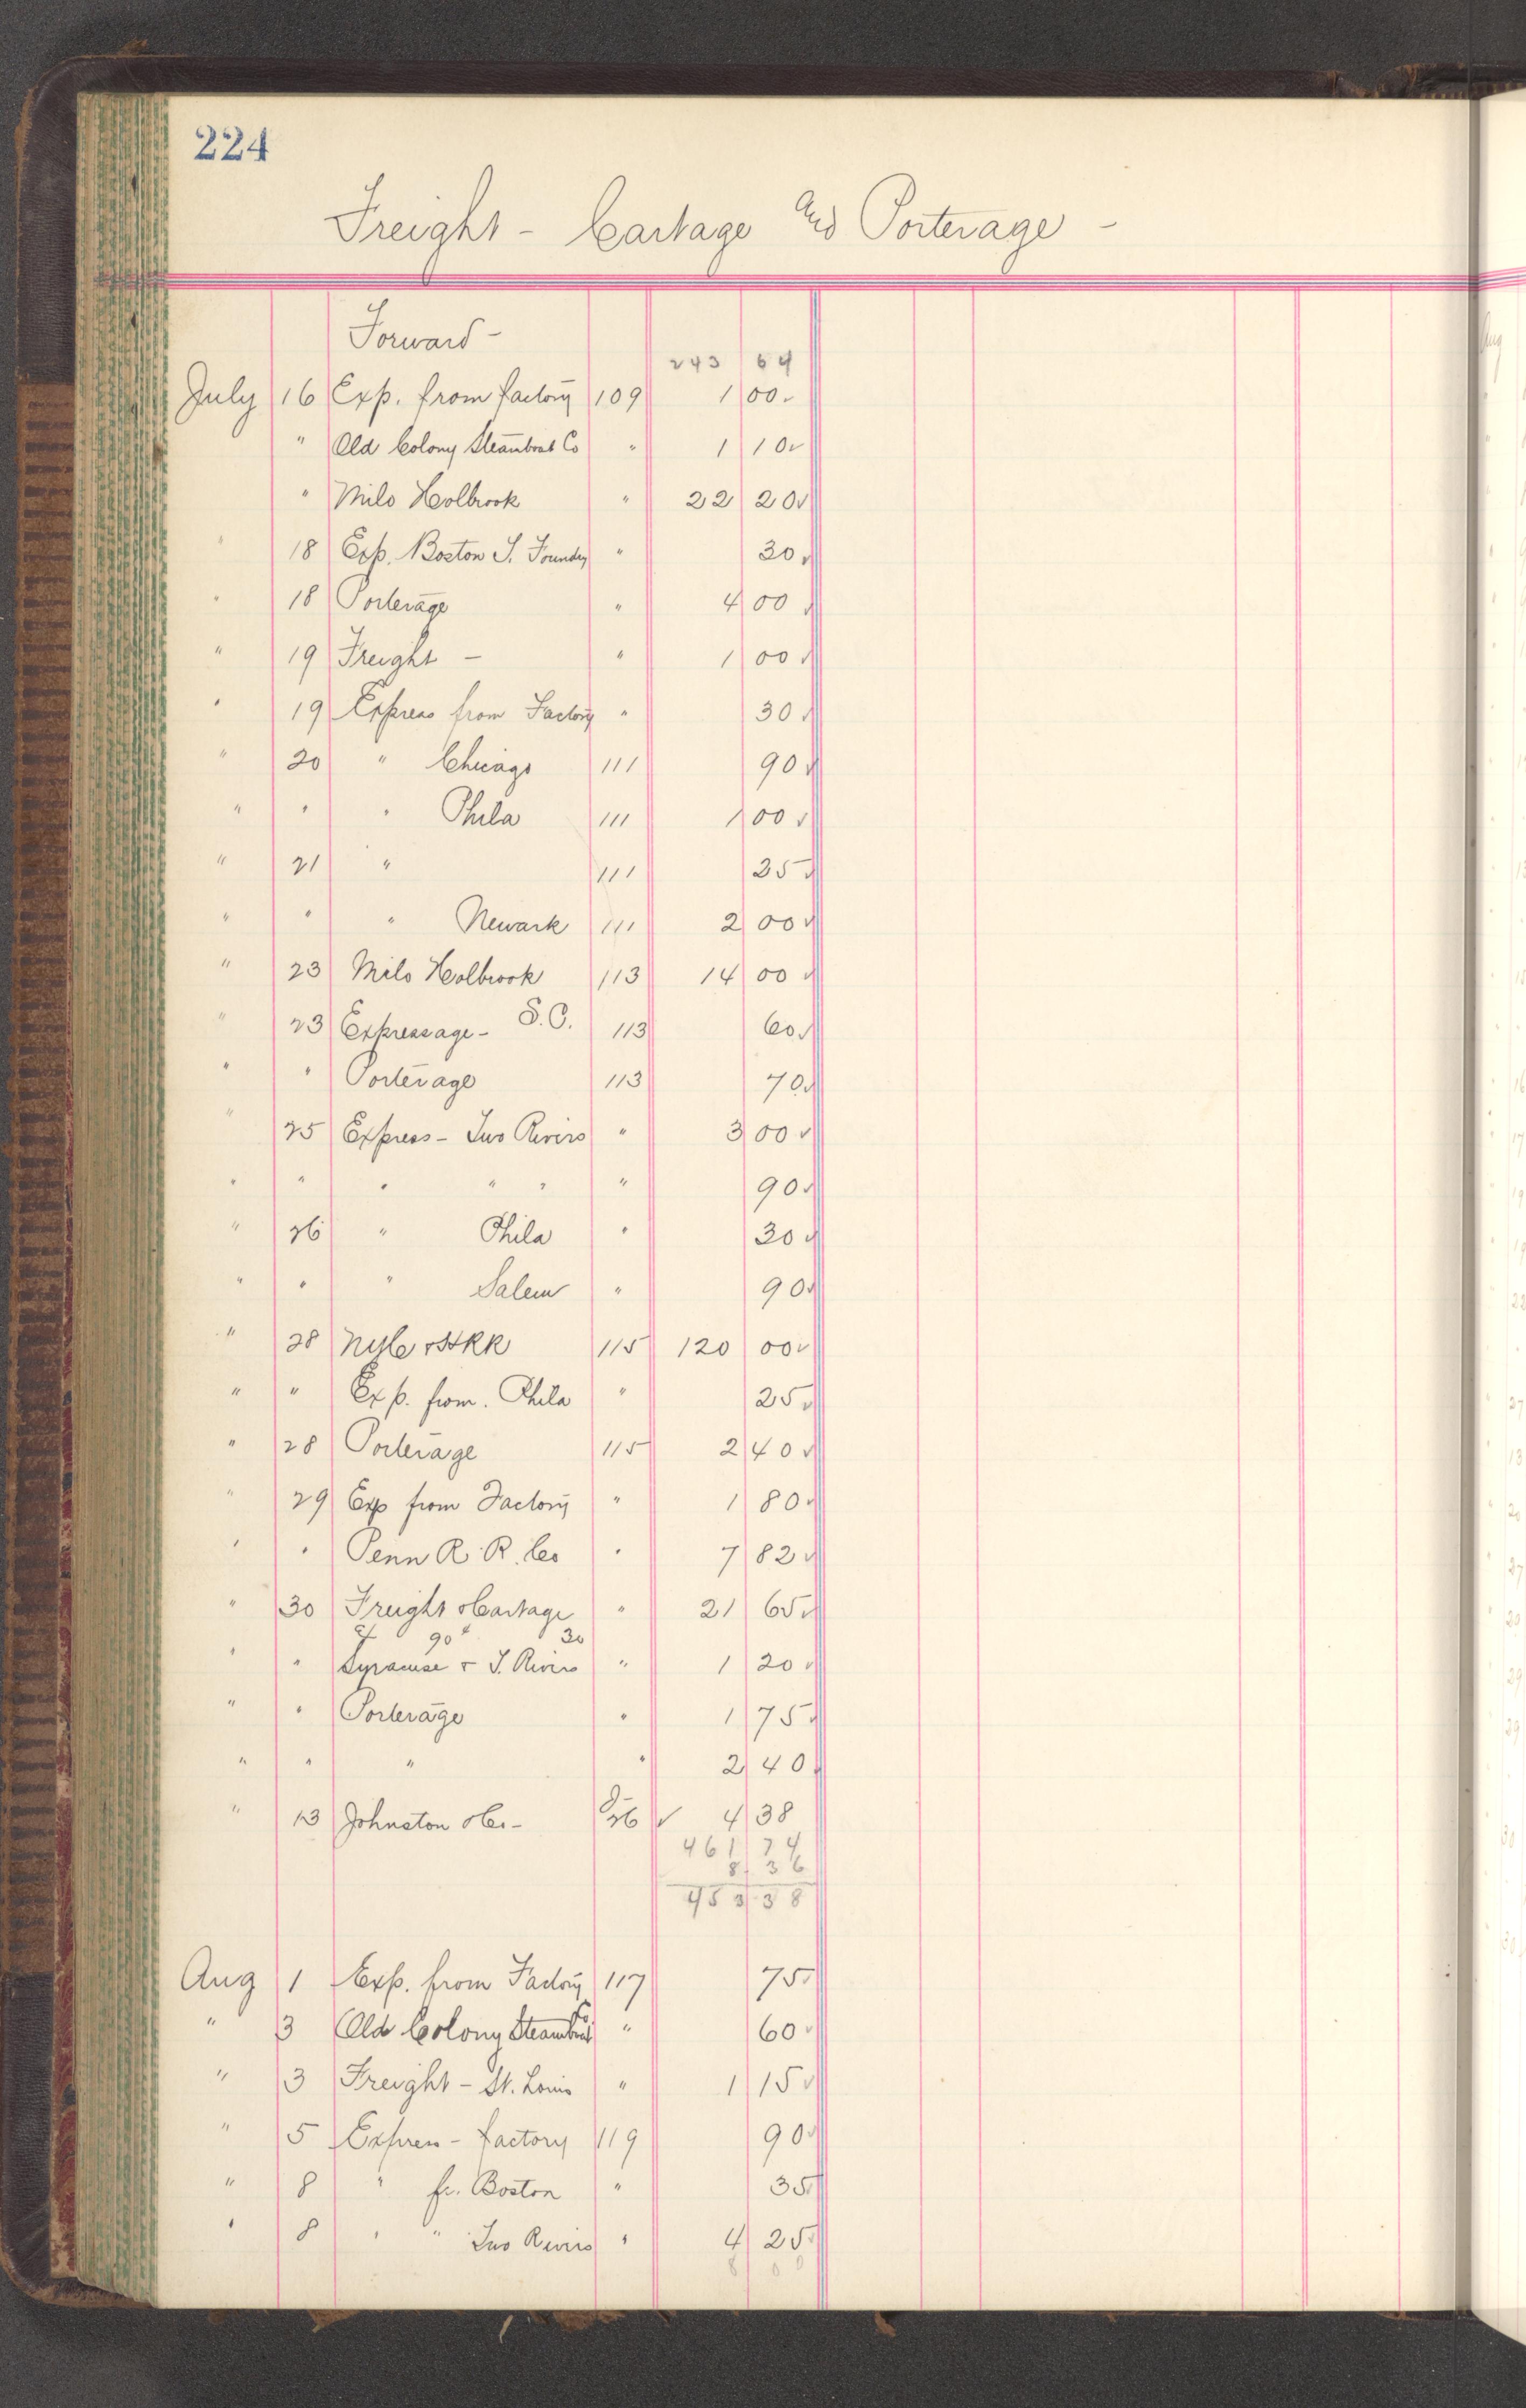 224
Freight - Cartage and Porterage -
Forward -
243 64
July 16 Exp. from factory 109 1 00
" Old Colony Steamboat Co " 1 10
" Milo Holbrook " 22 20
" 18 Exp. Boston T. Foundry " 30
" 18 Porterage " 4 00
" 19 Freight - " 1 00
" 19 Express from Factory " 30
" 20 " Chicago 111 90
" " " Phila 111 1 00
" 21 " 111 25
" " " Newark 111 2 00
" 23 Milo Holbrook 113 14 00
" 23 Expressage - S.C. 113 60
" " Porterage 113 70
" 25 Express - Two Rivers " 3 00
" " " " " " 90
" 26 " Phila " 30
" " " Salem " 90
" 28 NYC & HRR 115 120 00
" " Exp. from. Phila " 25
" 28 Porterage 115 2 40
" 29 Exp from Factory " 1 80
" " Penn R. R. Co " 7 82
" 30 Freight & Cartage " 21 65
90 30
" " Syracuse & T. Rivers " 1 20
" " Porterage " 1 75
" " " " 2 40
" 13 Johnston & Co - 26 ✓ 4 38
461 74
8 36
453 38
Aug 1 Exp. from Factory 117 75
" 3 Old Colony Steamboat Co " 60
" 3 Freight - St. Louis " 1 15
" 5 Express - factory 119 90
" 8 " fr. Boston " 35
" 8 " " Two Rivers " 4 25
8 00